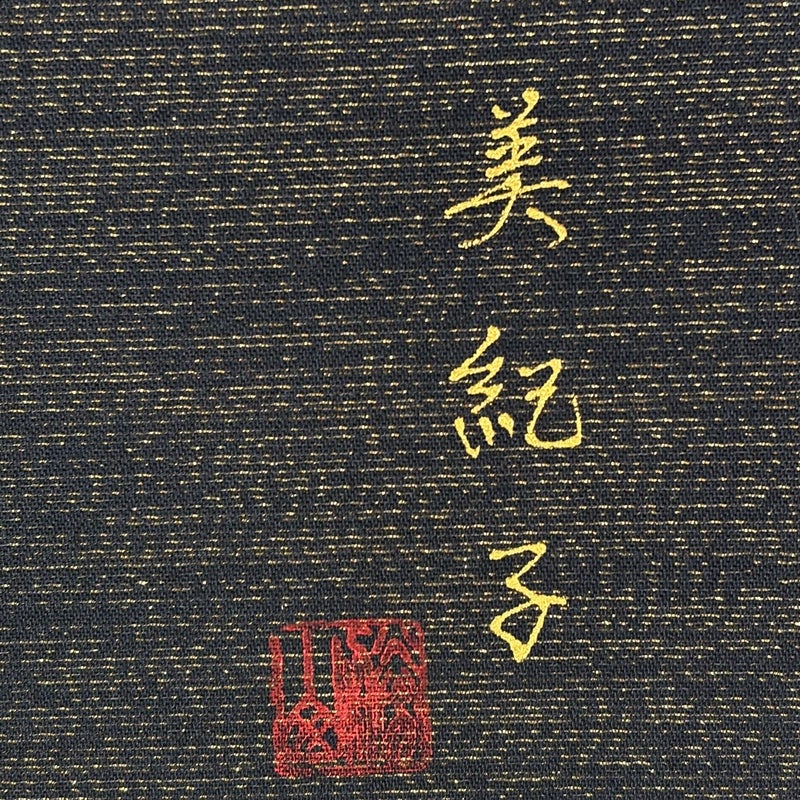 美紀子